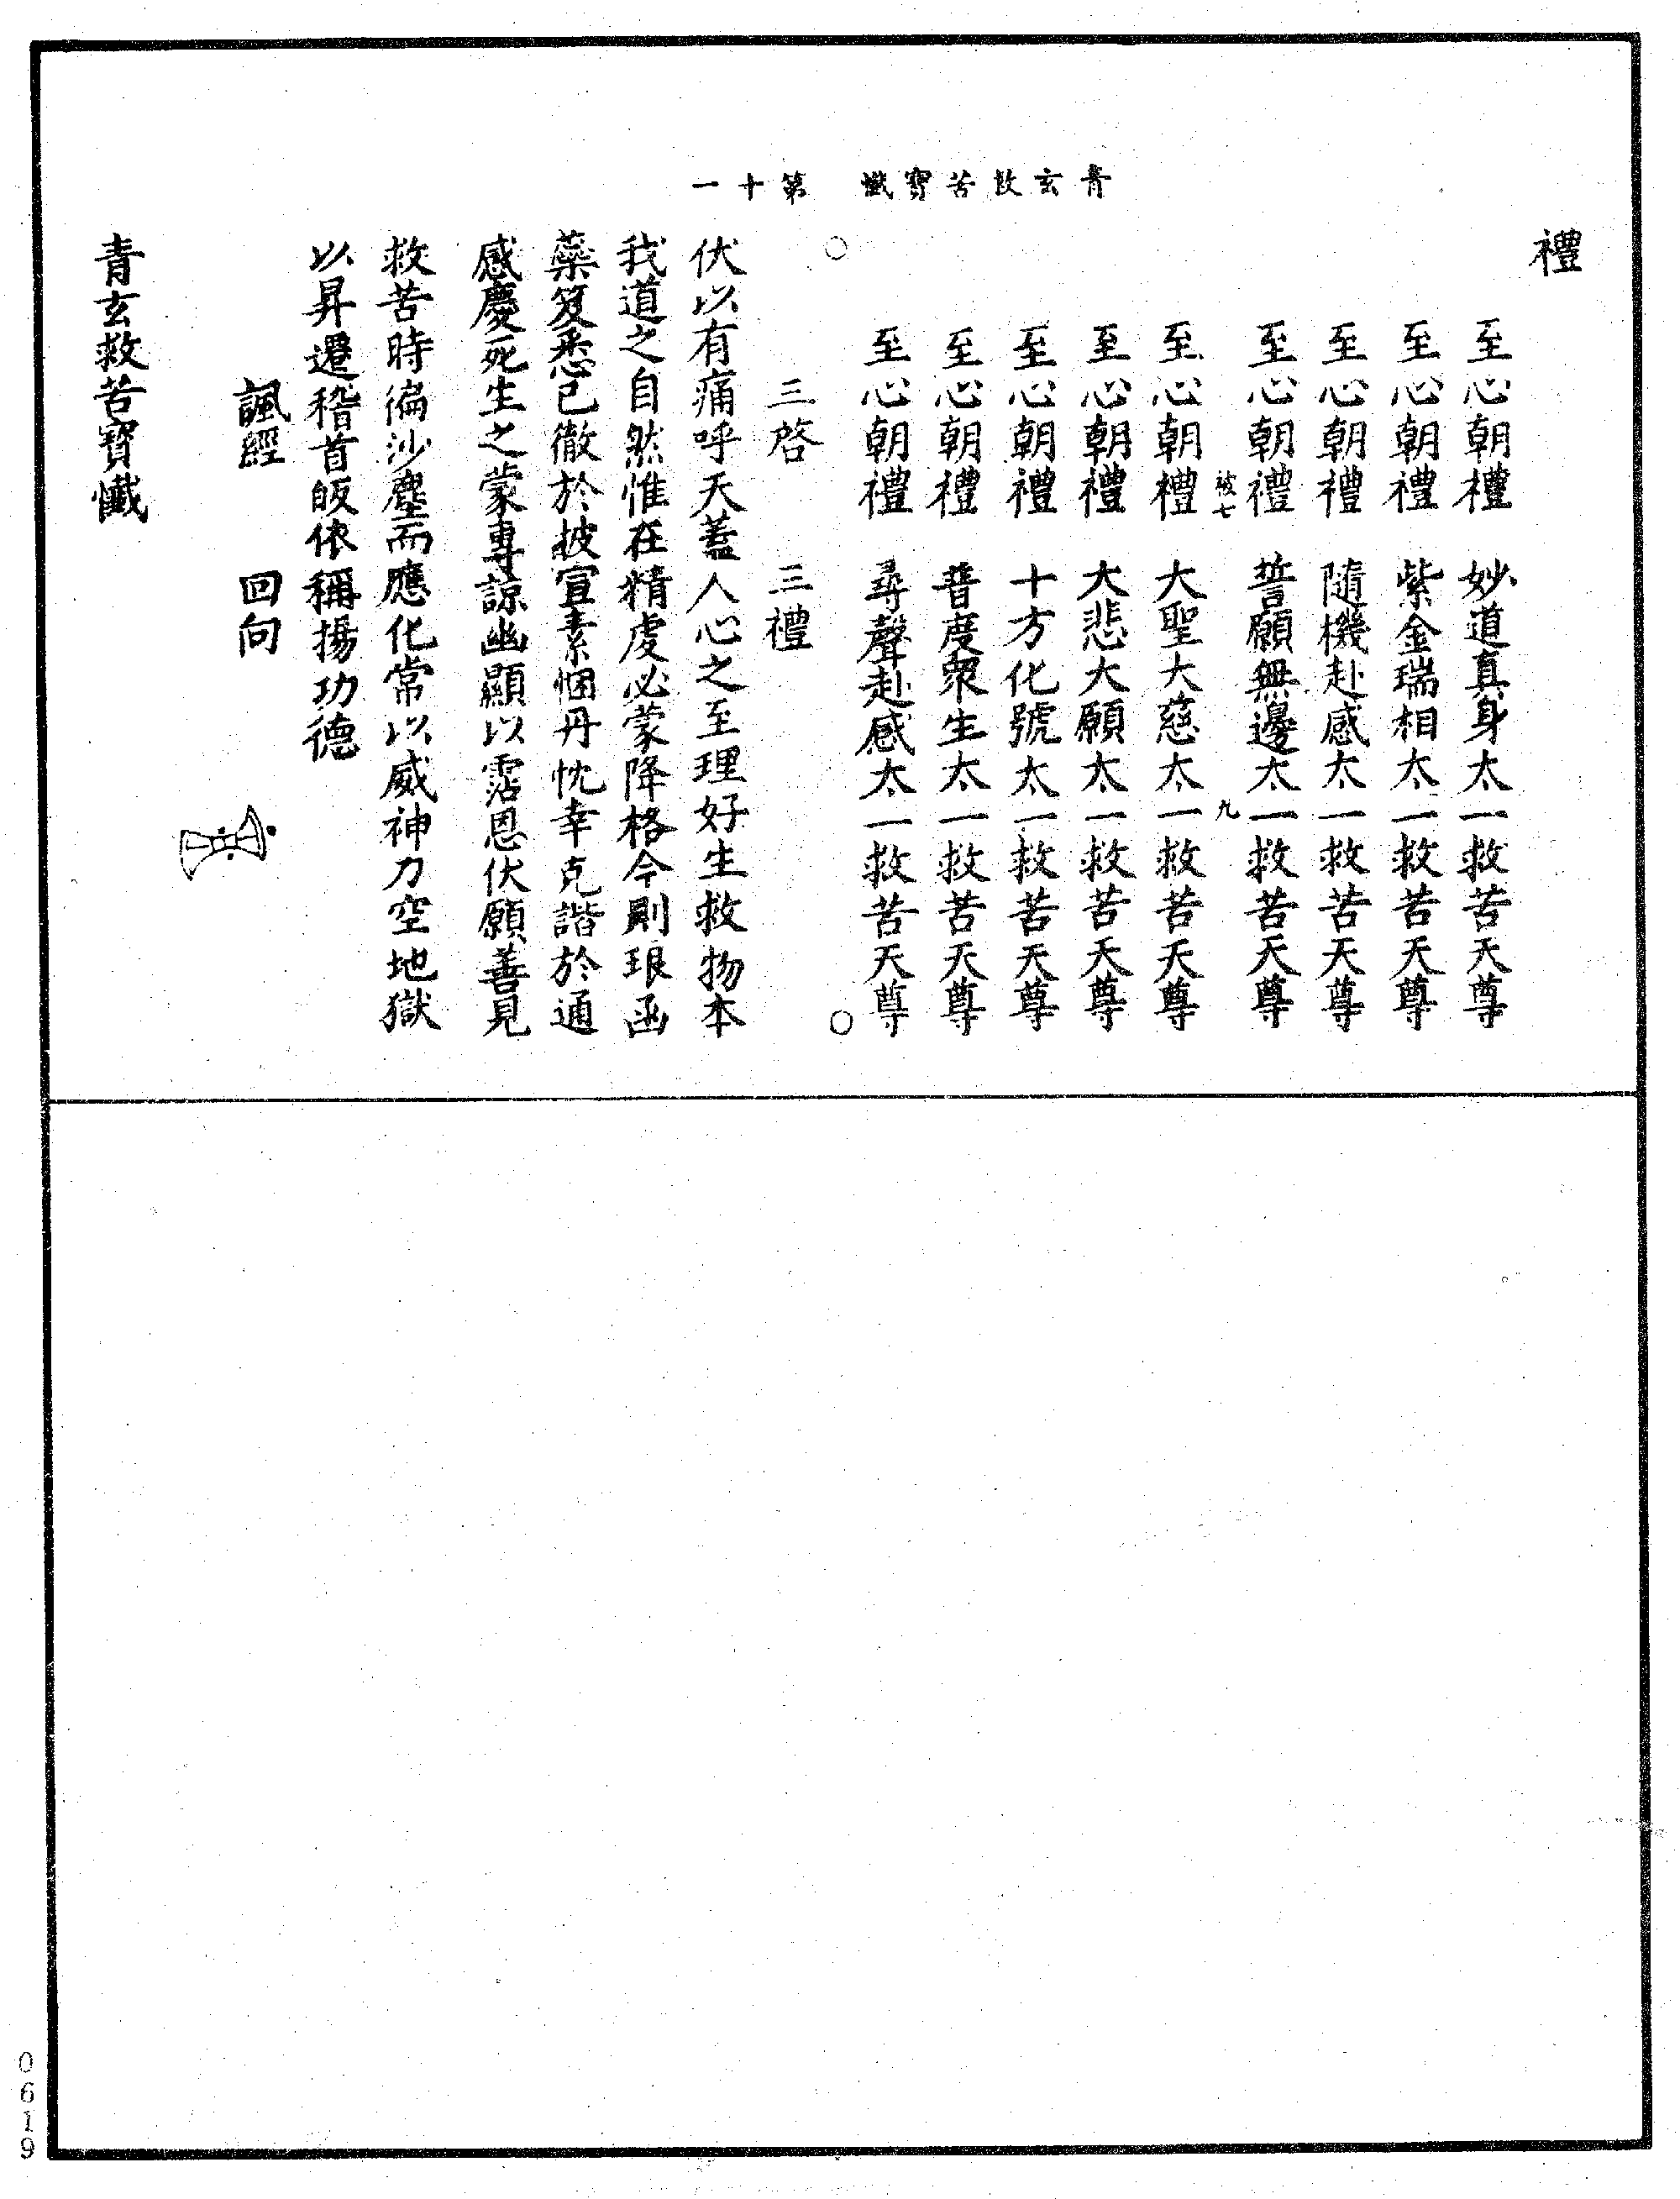 青玄救苦寶懺　第十一
禮
至心朝禮　妙道真身太一救苦天尊
至心朝禮　紫金瑞相太一救苦天尊
至心朝禮　隨機赴感太一救苦天尊
至心朝禮　誓願無邊太一救苦天尊
七　九
至心朝禮　大聖大慈太一救苦天尊
至心朝禮　大悲大願太一救苦天尊
至心朝禮　十方化號太一救苦天尊
至心朝禮　普度衆生太一救苦天尊
至心朝禮　尋聲赴感太一救苦天尊
○　○
三啓　三禮
伏以有痛呼天蓋人心之至理好生救物本
我道之自然惟在精虔必蒙降格今則琅函
蘂笈悉已徹於披宣素悃丹忱幸克諧於通
感慶死生之蒙專諒幽顯以霑恩伏願善見
救苦時徧沙塵而應化常以威神力空地獄
以昇遷稽首皈依稱揚功德
諷經　回向
青玄救苦寶懺
0619